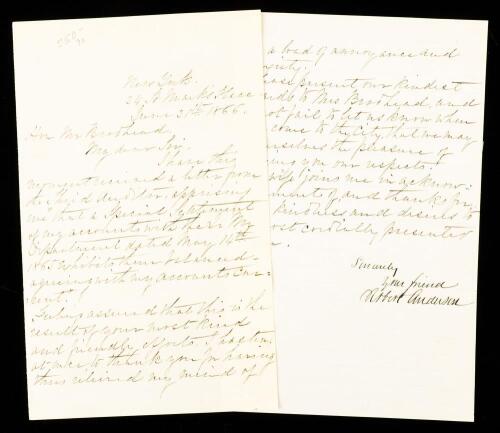 New York.
24. St Marks Place
June 20th 1866.
Hon Mr Brodhead,
My dear Sir.
I have this
moment received a letter from
the third Auditor, apprising
me that a Special Statement
of my accounts with
Department dated May 14th
1865 exhibits them balanced
agreeing with my accounts cur-
rent.
Feeling assured that this is the
result of your most kind
and friendly efforts, I hasten,
at once to thank you for having
thus relieved my mind of
a load of annoyance and
present our kindest
to Mrs Brodhead, and
fail to let us know when
come to the City, that we may
the pleasure of
you our respects.
wife joins me in acknow:
and thanks for
kindness, and desires to
most cordially presented
Sincerely
Your friend
Robert Anderson